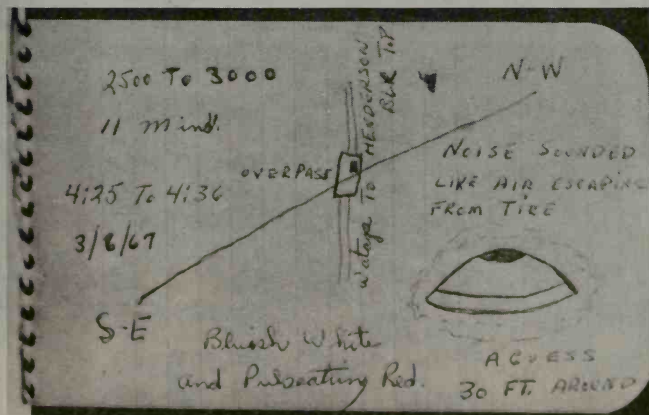 2500 To 3000
11 Mins.
4:25 To 4:36
3/8/67
S-E
OVERPASS
Wataga To HENDERSON
BLK TOP
N-W
NOISE SOUNDED
LIKE AIR ESCAPING
FROM TIRE
Bluish White
and Pulseating Red.
A GUESS
30 FT. AROUND